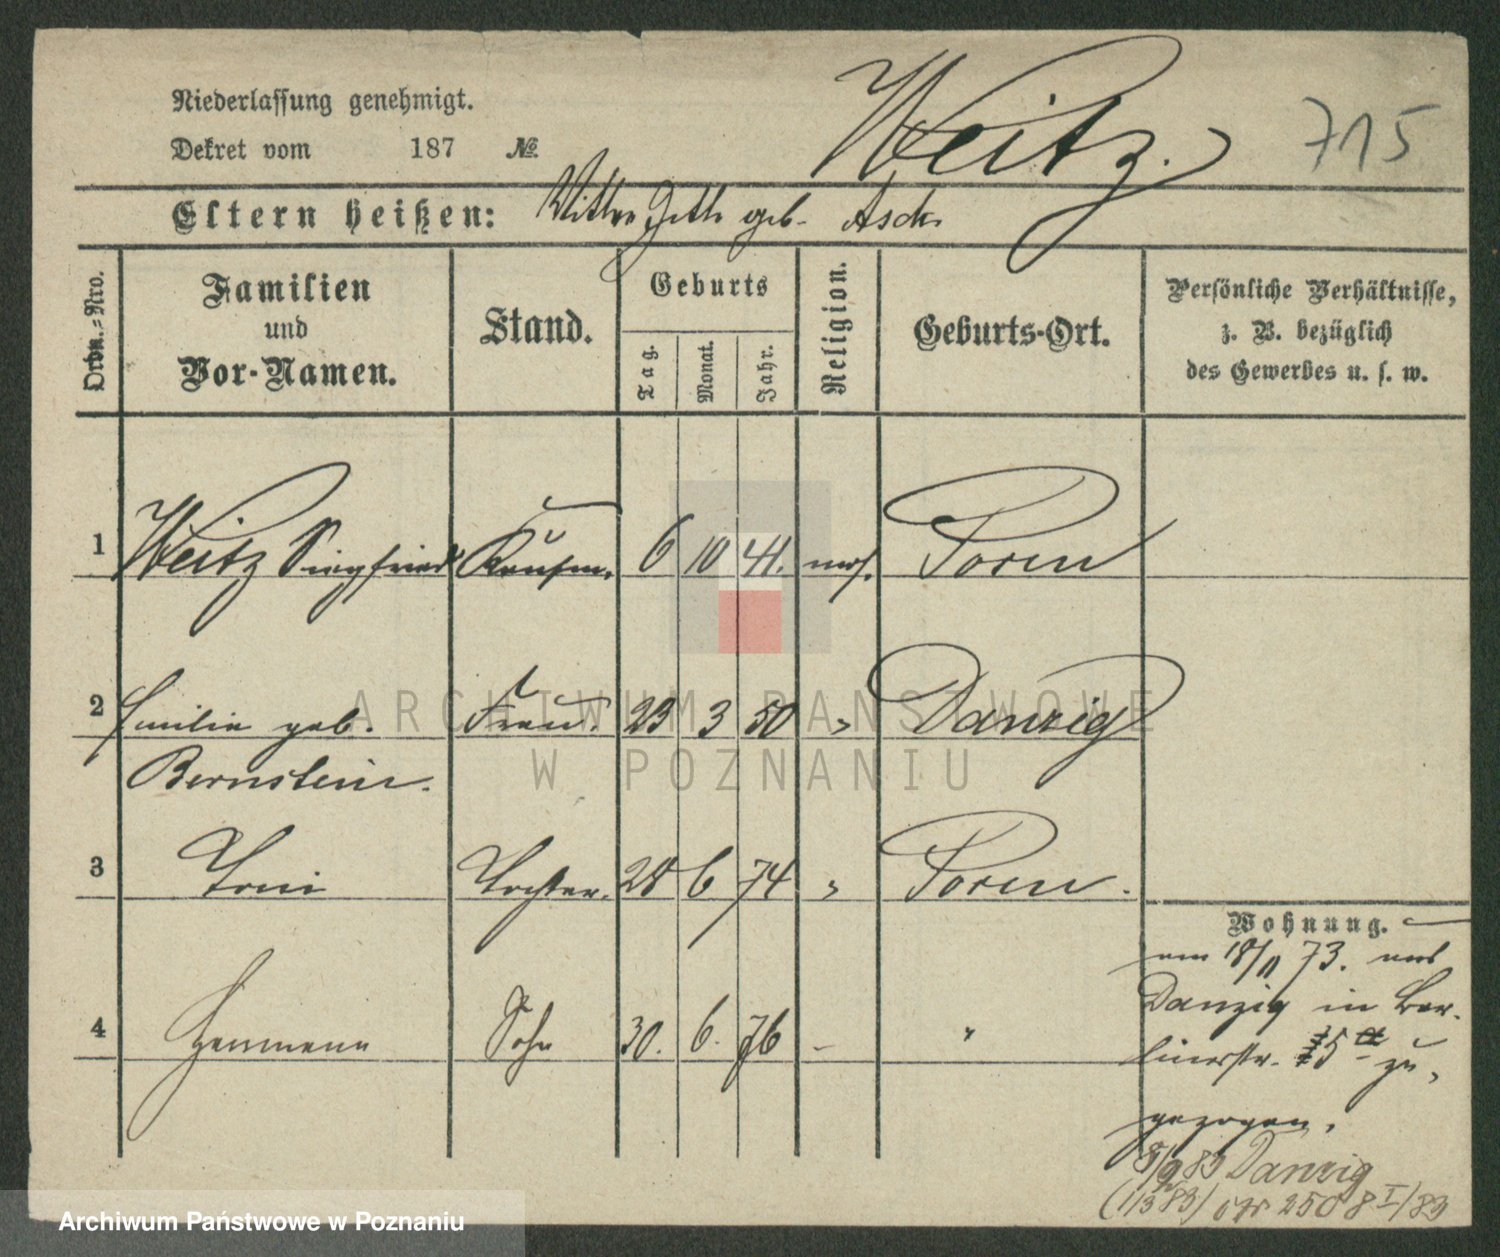 Niederlassung genehmigt.
Dekret vom 187 №
Weitz.
715
Eltern heißen: geb. Asch
Ordn.-Nro.
Familien und Vor-Namen.
Stand.
Geburts
Tag.
Monat.
Jahr.
Religion.
Geburts-Ort.
Persönliche Verhältnisse,
z. B. bezüglich
des Gewerbes u. s. w.
1 Weitz Siegfried Kaufm. 6 10 41. mos. Posen
2 Emilie geb. Frau. 23 3 50 " Danzig
Bernstein.
3 Toni Tochter. 28 6 74 " Posen.
4 Hermann Sohn 30. 6. 76 - "
Wohnung.
am 18/11 73. aus
Danzig in Ber-
linerstr. 15 zu-
gezogen.
8/9 83 Danzig
(11383) 250 8 I/83
ARCHIWUM PAŃSTWOWE
W POZNANIU
Archiwum Państwowe w Poznaniu